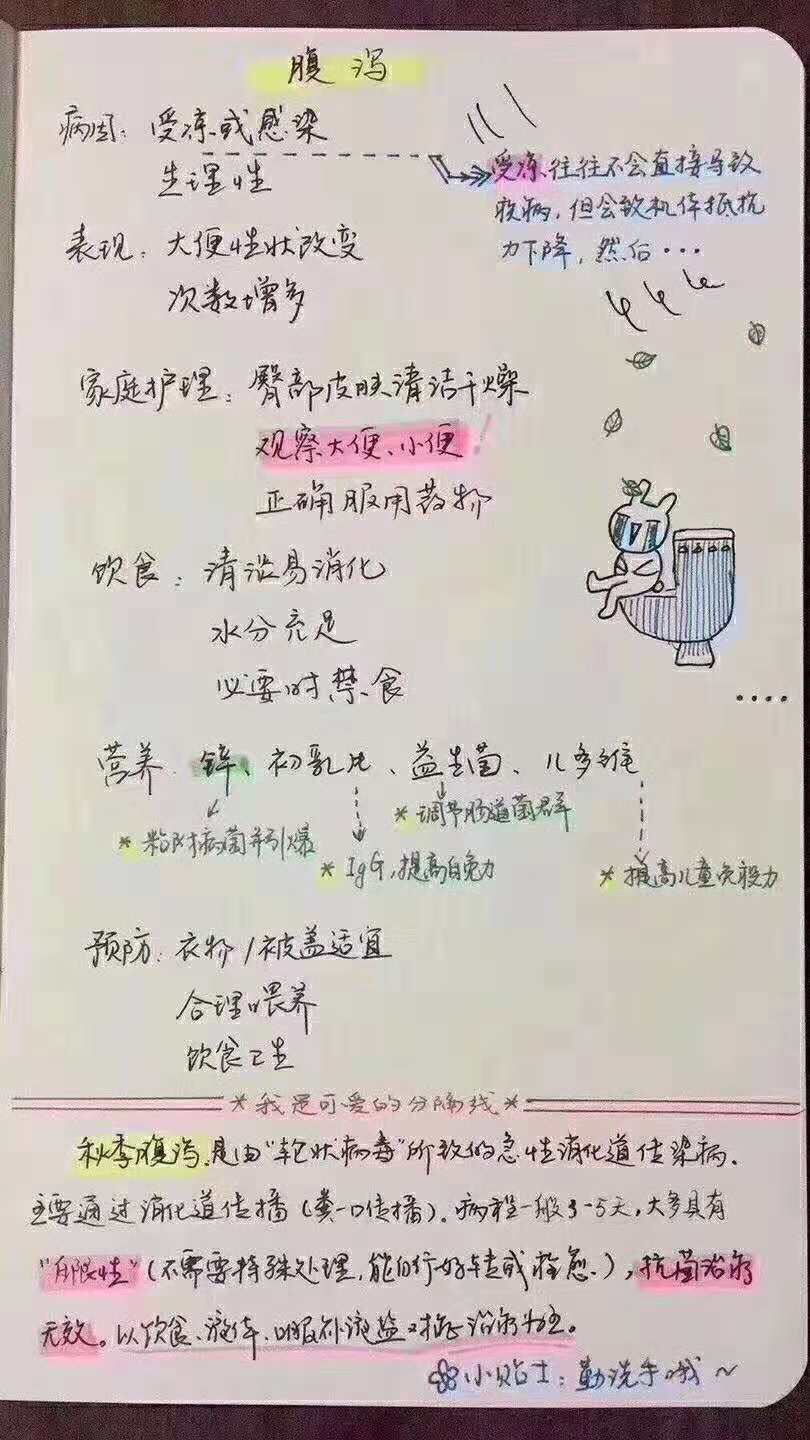 腹泻
病因：受凉或感染
生理性
受凉往往不会直接导致
疾病，但会致机体抵抗
力下降，然后···
表现：大便性状改变
次数增多
家庭护理：臀部皮肤清洁干燥
观察大便、小便！
正确服用药物
饮食：清淡易消化
水分充足
必要时禁食
....
营养：锌、初乳片、益生菌、儿多维
*调节肠道菌群
*粘附病菌并引爆
*IgG，提高自免力
*提高儿童免疫力
预防：衣物/被盖适宜
合理喂养
饮食卫生
*我是可爱的分隔线*
秋季腹泻，是由“轮状病毒”所致的急性消化道传染病。
主要通过消化道传播（粪-口传播）。病程一般3-5天，大多具有
“自限性”（不需要特殊处理，能自行好转或痊愈。），抗菌治疗
无效。以饮食、液体、口服补液盐对症治疗为主。
小贴士：勤洗手哦～